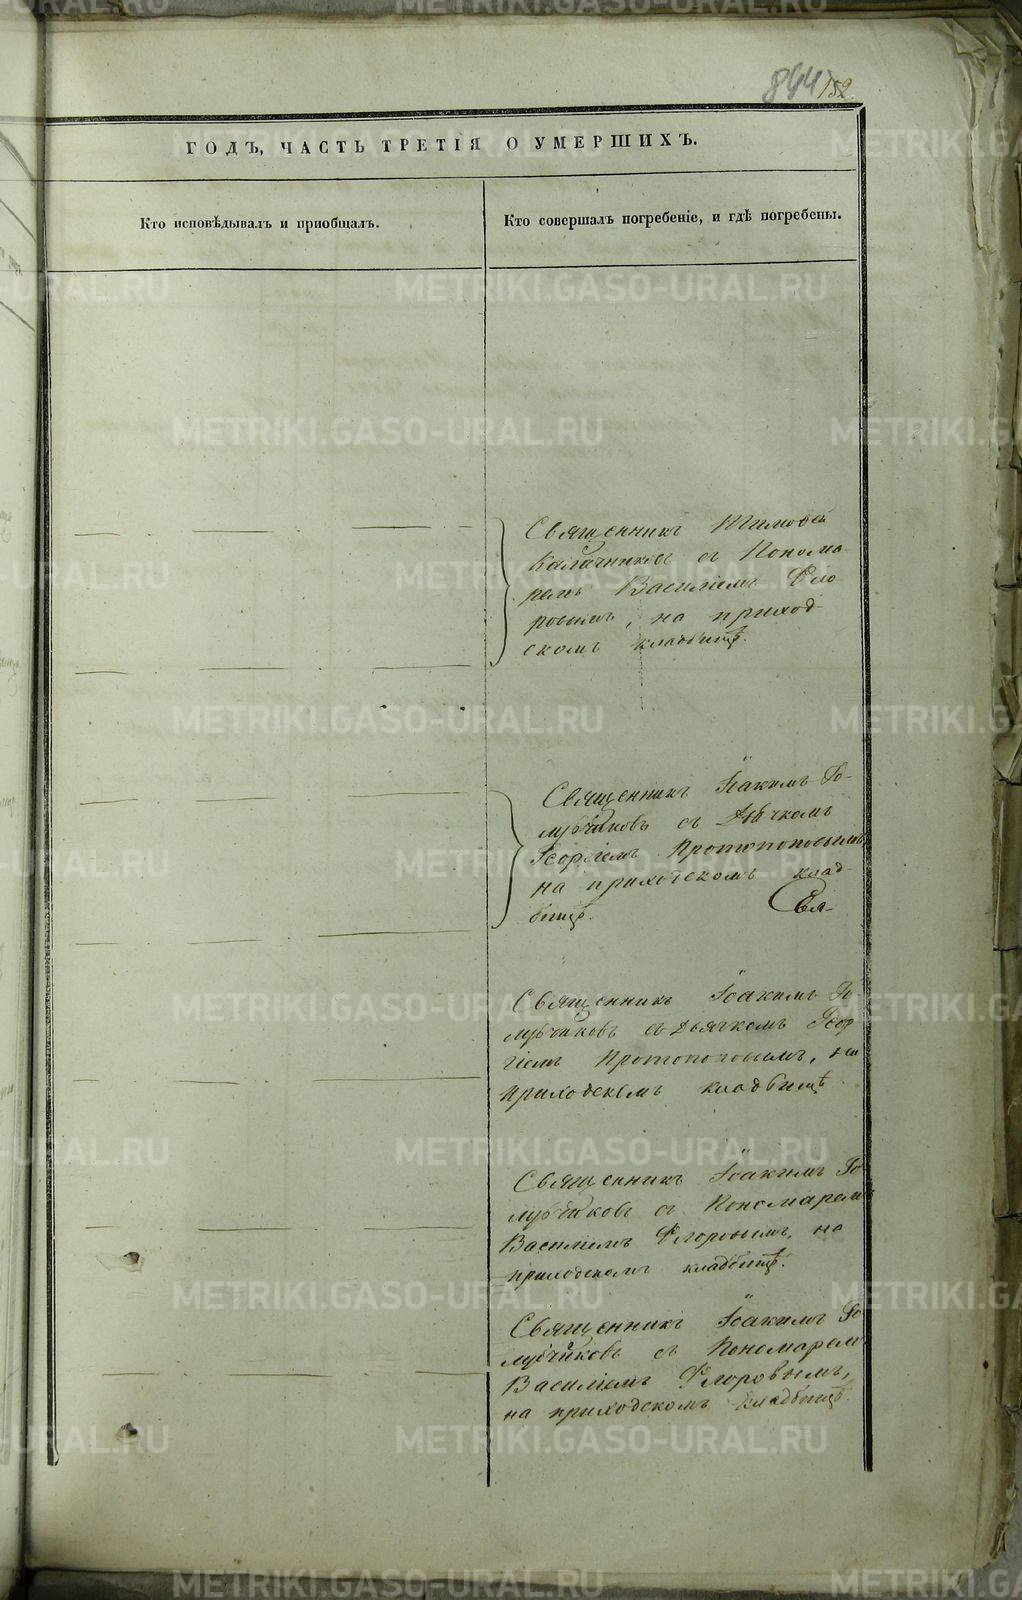 844 152
ГОДЪ, ЧАСТЬ ТРЕТІЯ О УМЕРШИХЪ.
Кто исповѣдывалъ и пріобщалъ.
Кто совершалъ погребеніе, и гдѣ погребены.
Священникъ Тимофей
Калачниковъ съ Понома-
ремъ Василіемъ Фло-
ровымъ, на приход-
скомъ кладбищѣ.
Священникъ Іоакимъ Го-
лубчиковъ съ Дьячкомъ
Георгіемъ Протопоповымъ
на приходскомъ клад-
бищѣ.
Священникъ Іоакимъ Го
лубчиковъ съ Дьячкомъ Геор
гіемъ Протопоповымъ, на
приходскомъ кладбищѣ
Священникъ Іоакимъ Го
лубчиковъ съ Пономаремъ
Василіемъ Флоровымъ, на
приходскомъ кладбищѣ.
Священникъ Іоакимъ Го
лубчиковъ съ Пономаремъ
Василіемъ Флоровымъ,
на приходскомъ кладбищѣ.
METRIKI.GASO-URAL.RU